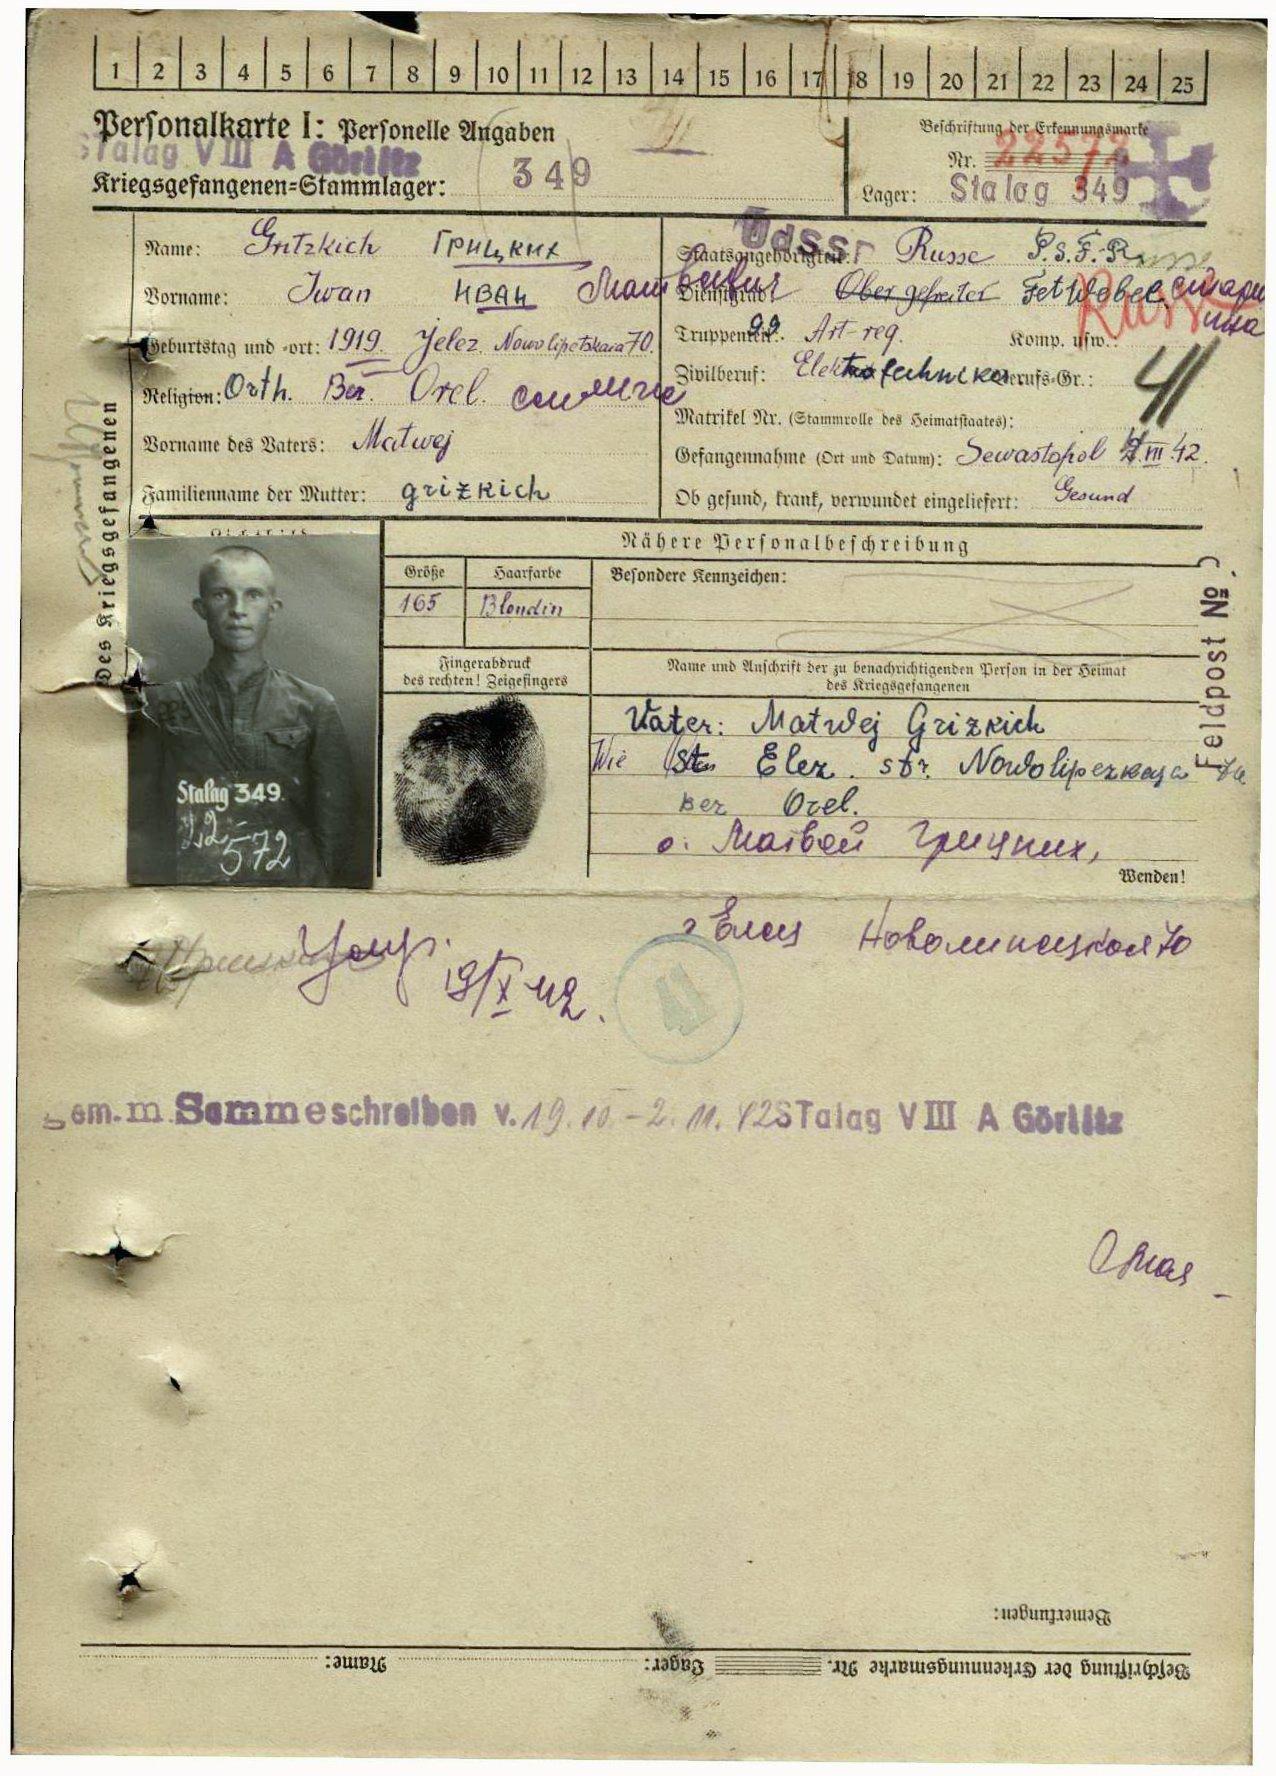 1 2 3 4 5 6 7 8 9 10 11 12 13 14 15 16 17 18 19 20 21 22 23 24 25
Personalkarte I: Personelle Angaben
Beschriftung der Erkennungsmarke
Stalag VIII A Görlitz
Nr. 22572
Kriegsgefangenen-Stammlager: 349
Lager: Stalag 349
Name: Gritzkich Грицких
UdSSR
Staatsangehörigkeit: Russe
Vorname: Iwan Иван Матвеевич
Dienstgrad: Obergefreiter Fetwebel старшина
Russe
Geburtstag und -ort: 1919. Jelez. Nowolipetskaia 70.
Truppenteil: 99. Art-reg. Komp. usw.:
Religion: Orth. Bez. Orel.
Zivilberuf: Elektrotechniker Berufs-Gr.: 41
Matrikel Nr. (Stammrolle des Heimatstaates):
Vorname des Vaters: Matwej
Gefangennahme (Ort und Datum): Sewastopol VII.42.
Familienname der Mutter: grizkich
Ob gesund, krank, verwundet eingeliefert: Gesund
Des Kriegsgefangenen
Lichtbild
Nähere Personalbeschreibung
Größe Haarfarbe Besondere Kennzeichen:
165 Blondin
Fingerabdruck
des rechten! Zeigefingers
Name und Anschrift der zu benachrichtigenden Person in der Heimat
des Kriegsgefangenen
Feldpost №
Vater: Matwej Grizkich
Elez. str. Nowolipezkaja 70
Bez Orel.
о. Матвей Грицких,
Stalag 349.
22-
572
Wenden!
г Елец Новолипецкая 70
19/X 42.
41
gem. m. Sammeschreiben v. 19.10.-2.11.42 STalag VIII A Görlitz
Bemerkungen:
Beschriftung der Erkennungsmarke Nr. Lager: Name: